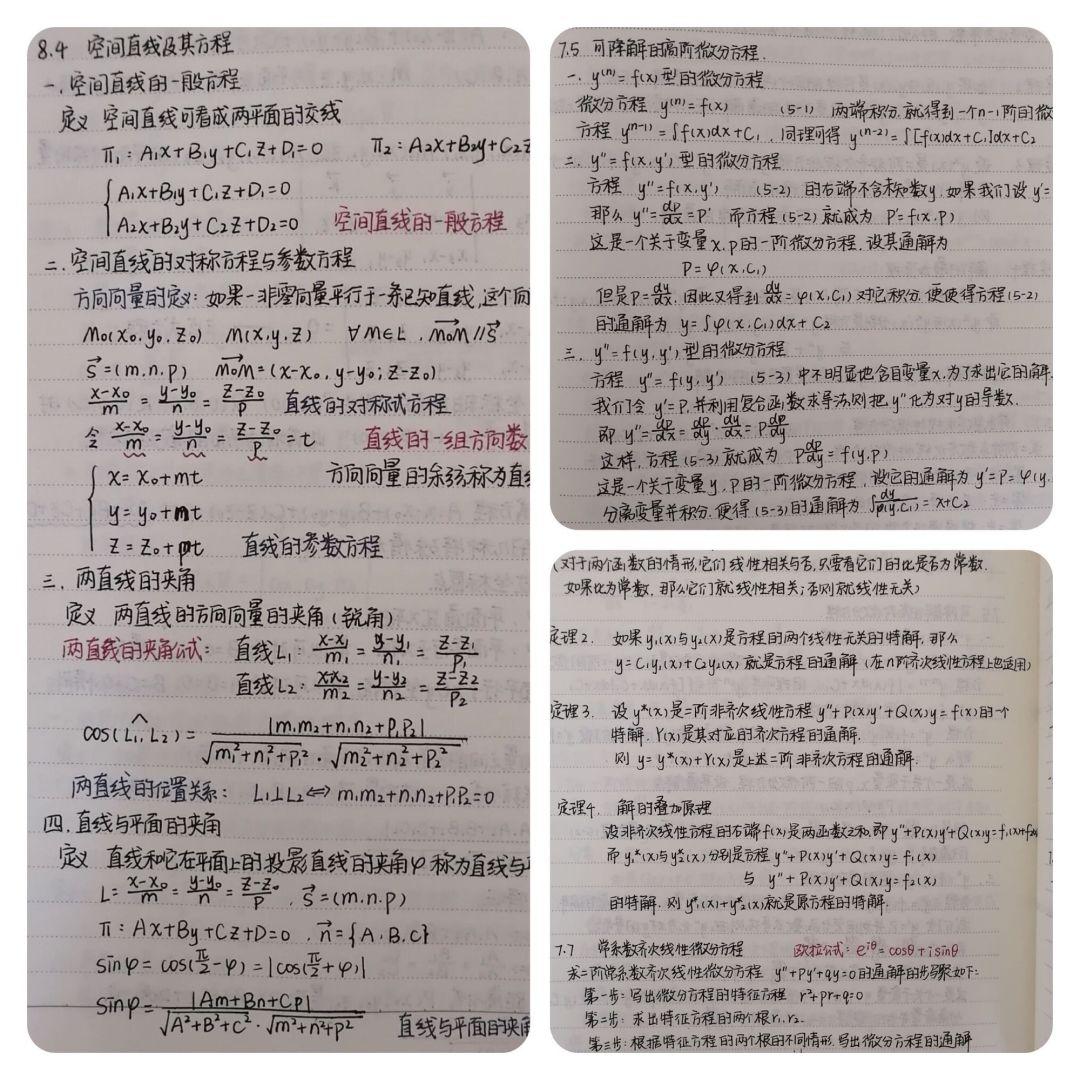 8.4 空间直线及其方程
一.空间直线的一般方程
定义 空间直线可看成两平面的交线
π₁:A₁x+B₁y+C₁z+D₁=0 π₂:A₂x+B₂y+C₂z
{A₁x+B₁y+C₁z+D₁=0
A₂x+B₂y+C₂z+D₂=0 空间直线的一般方程
二.空间直线的对称方程与参数方程
方向向量的定义:如果一非零向量平行于一条已知直线,这个向
M₀(x₀,y₀,z₀) M(x,y,z) ∀M∈L,M₀M→∥s→
s→=(m,n,p) M₀M→=(x-x₀,y-y₀,z-z₀)
(x-x₀)/m=(y-y₀)/n=(z-z₀)/p 直线的对称式方程
令(x-x₀)/m=(y-y₀)/n=(z-z₀)/p=t 直线的一组方向数
{x=x₀+mt 方向向量的余弦称为直线
y=y₀+nt
z=z₀+pt 直线的参数方程
三.两直线的夹角
定义 两直线的方向向量的夹角(锐角)
两直线的夹角公式: 直线L₁ (x-x₁)/m₁=(y-y₁)/n₁=(z-z₁)/p₁
直线L₂:(x-x₂)/m₂=(y-y₂)/n₂=(z-z₂)/p₂
cos(L₁^,L₂)=|m₁m₂+n₁n₂+p₁p₂|/(√(m₁²+n₁²+p₁²)·√(m₂²+n₂²+p₂²))
两直线的位置关系: L₁⊥L₂⇔m₁m₂+n₁n₂+p₁p₂=0
四.直线与平面的夹角
定义 直线和它在平面上的投影直线的夹角φ称为直线与平
L=(x-x₀)/m=(y-y₀)/n=(z-z₀)/p,s→=(m,n,p)
π:Ax+By+Cz+D=0,n→={A,B,C}
sinφ=cos(π/2-φ)=|cos(π/2+φ)|
sinφ=|Am+Bn+Cp|/(√(A²+B²+C²)·√(m²+n²+p²)) 直线与平面的夹角
7.5 可降解的高阶微分方程.
一.y⁽ⁿ⁾=f(x)型的微分方程
微分方程 y⁽ⁿ⁾=f(x) (5-1) 两端积分,就得到一个n-1阶的微
方程 y⁽ⁿ⁻¹⁾=∫f(x)dx+C₁,同理可得 y⁽ⁿ⁻²⁾=∫[∫f(x)dx+C₁]dx+C₂
二.y''=f(x,y')型的微分方程
方程 y''=f(x,y') (5-2) 的右端不含未知数y,如果我们设y'=
那么 y''=dp/dx=P' 而方程(5-2)就成为 P'=f(x,p)
这是一个关于变量x,p的一阶微分方程,设其通解为
P=φ(x,C₁)
但是P=dy/dx,因此又得到dy/dx=φ(x,C₁)对它积分,便使得方程(5-2)
的通解为 y=∫φ(x,C₁)dx+C₂
三.y''=f(y,y')型的微分方程
方程 y''=f(y,y') (5-3)中不明显地含自变量x.为了求出它的解.
我们令 y'=P,并利用复合函数求导法则把y''化为对y的导数.
即 y''=dp/dx=dp/dy·dy/dx=Pdp/dy
这样,方程(5-3)就成为 Pdp/dy=f(y,p)
这是一个关于变量y,p的一阶微分方程,设它的通解为y'=P=φ(y,
分离变量并积分,便得(5-3)的通解为∫dy/φ(y,C₁)=x+C₂
(对于两个函数的情形,它们线性相关与否,只要看它们的比是否为常数.
如果比为常数,那么它们就线性相关;否则就线性无关)
定理2. 如果y₁(x)与y₂(x)是方程的两个线性无关的特解,那么
y=C₁y₁(x)+C₂y₂(x)就是方程的通解(在n阶齐次线性方程上也适用)
定理3. 设y*(x)是二阶非齐次线性方程y''+P(x)y'+Q(x)y=f(x)的一个
特解.Y(x)是其对应的齐次方程的通解.
则 y=y*(x)+Y(x)是上述二阶非齐次方程的通解.
定理4. 解的叠加原理
设非齐次线性方程的右端f(x)是两函数之和,即y''+P(x)y'+Q(x)y=f₁(x)+f₂(x)
而y₁*(x)与y₂*(x)分别是方程y''+P(x)y'+Q(x)y=f₁(x)
与 y''+P(x)y'+Q(x)y=f₂(x)
的特解.则y₁*(x)+y₂*(x)就是原方程的特解.
7.7 常系数齐次线性微分方程 欧拉公式:e^(iθ)=cosθ+isinθ
求二阶常系数齐次线性微分方程 y''+Py'+qy=0的通解的步骤如下:
第一步:写出微分方程的特征方程 r²+pr+q=0
第二步:求出特征方程的两个根r₁,r₂.
第三步:根据特征方程的两个根的不同情形,写出微分方程的通解